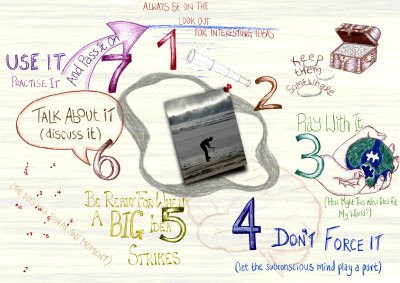 ALWAYS BE ON THE
LOOK OUT
FOR INTERESTING IDEAS
1
2
KEEP
THEM
SOMEWHERE
Play With It
3
(How Might This New Idea Fit
My World?)
4
DON'T FORCE IT
(let the subconscious mind play a part)
BE READY FOR WHEN
A BIG IDEA
5
STRIKES
TALK ABOUT IT
(discuss it)
6
USE IT
PRACTISE IT
And Pass it On
7